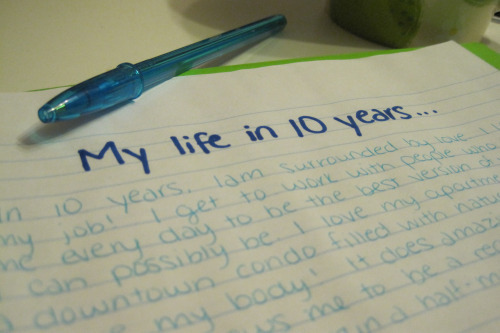 My life in 10 years...
In 10 years, I am surrounded by love. I
my job! I get to work with people who
me every day to be the best version of
I can possibly be. I love my apartment
downtown condo filled with natu
my body! It does amaz
me to be a
in a half-